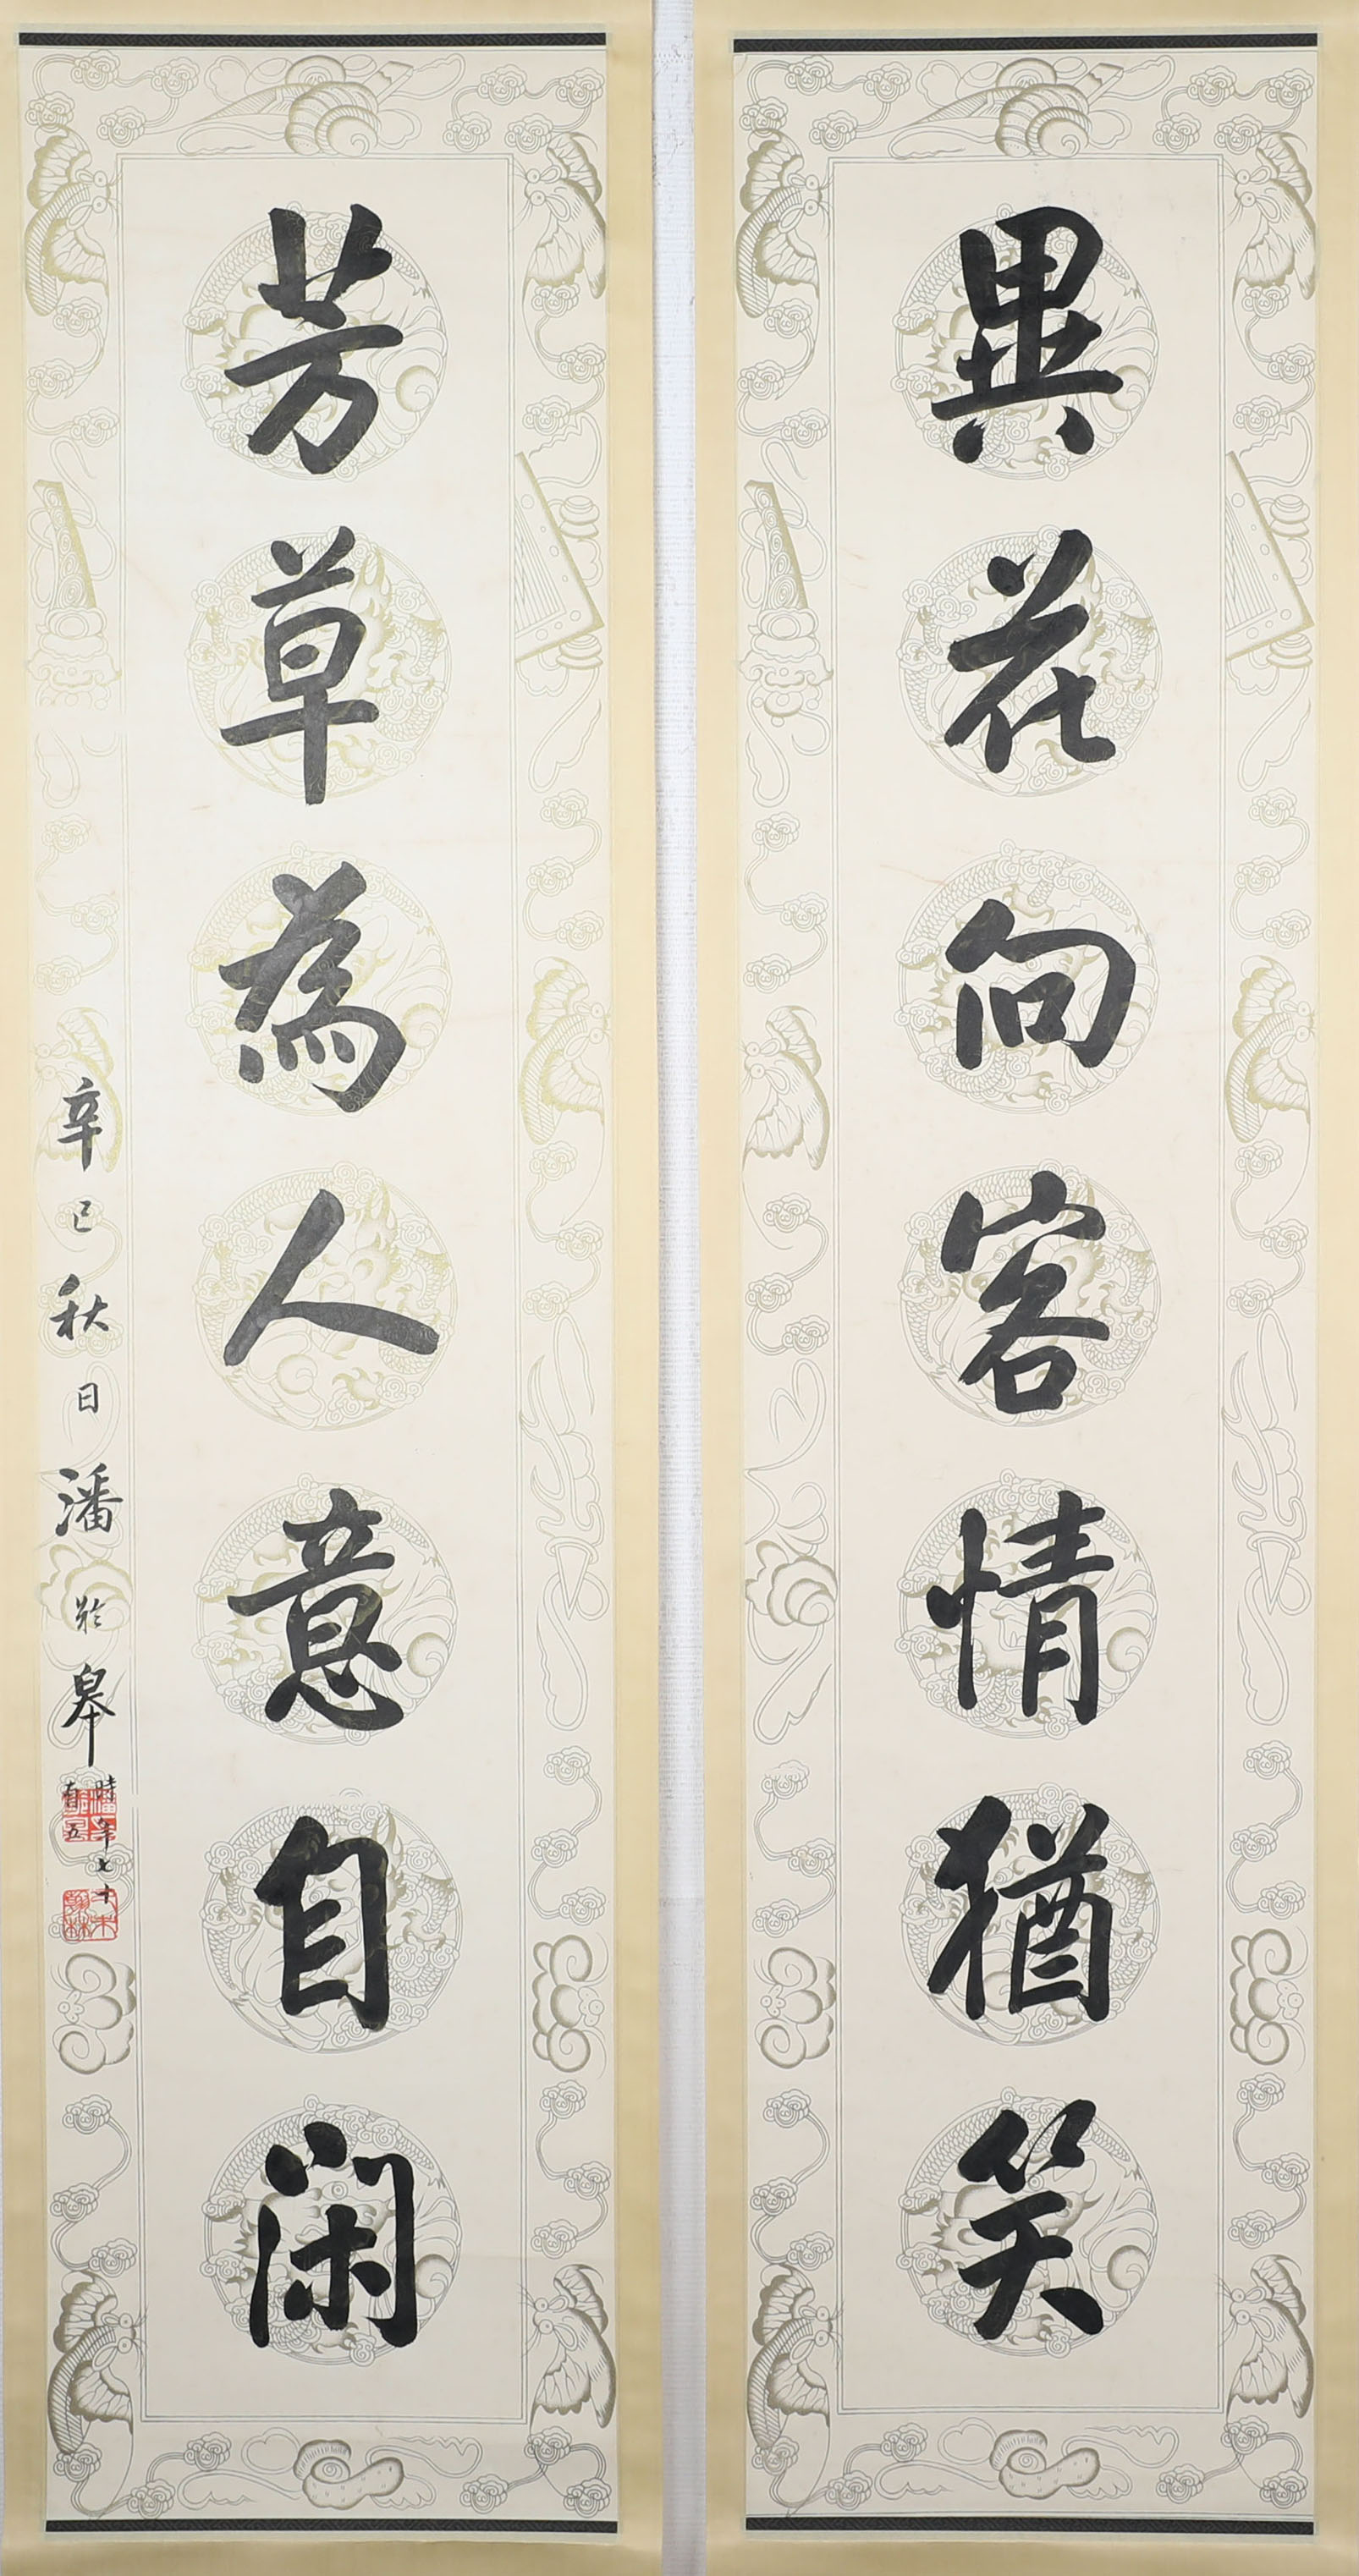 異花向客情猶笑
芳草為人意自閑
辛巳秋日潘齡皋
時年七十
有五